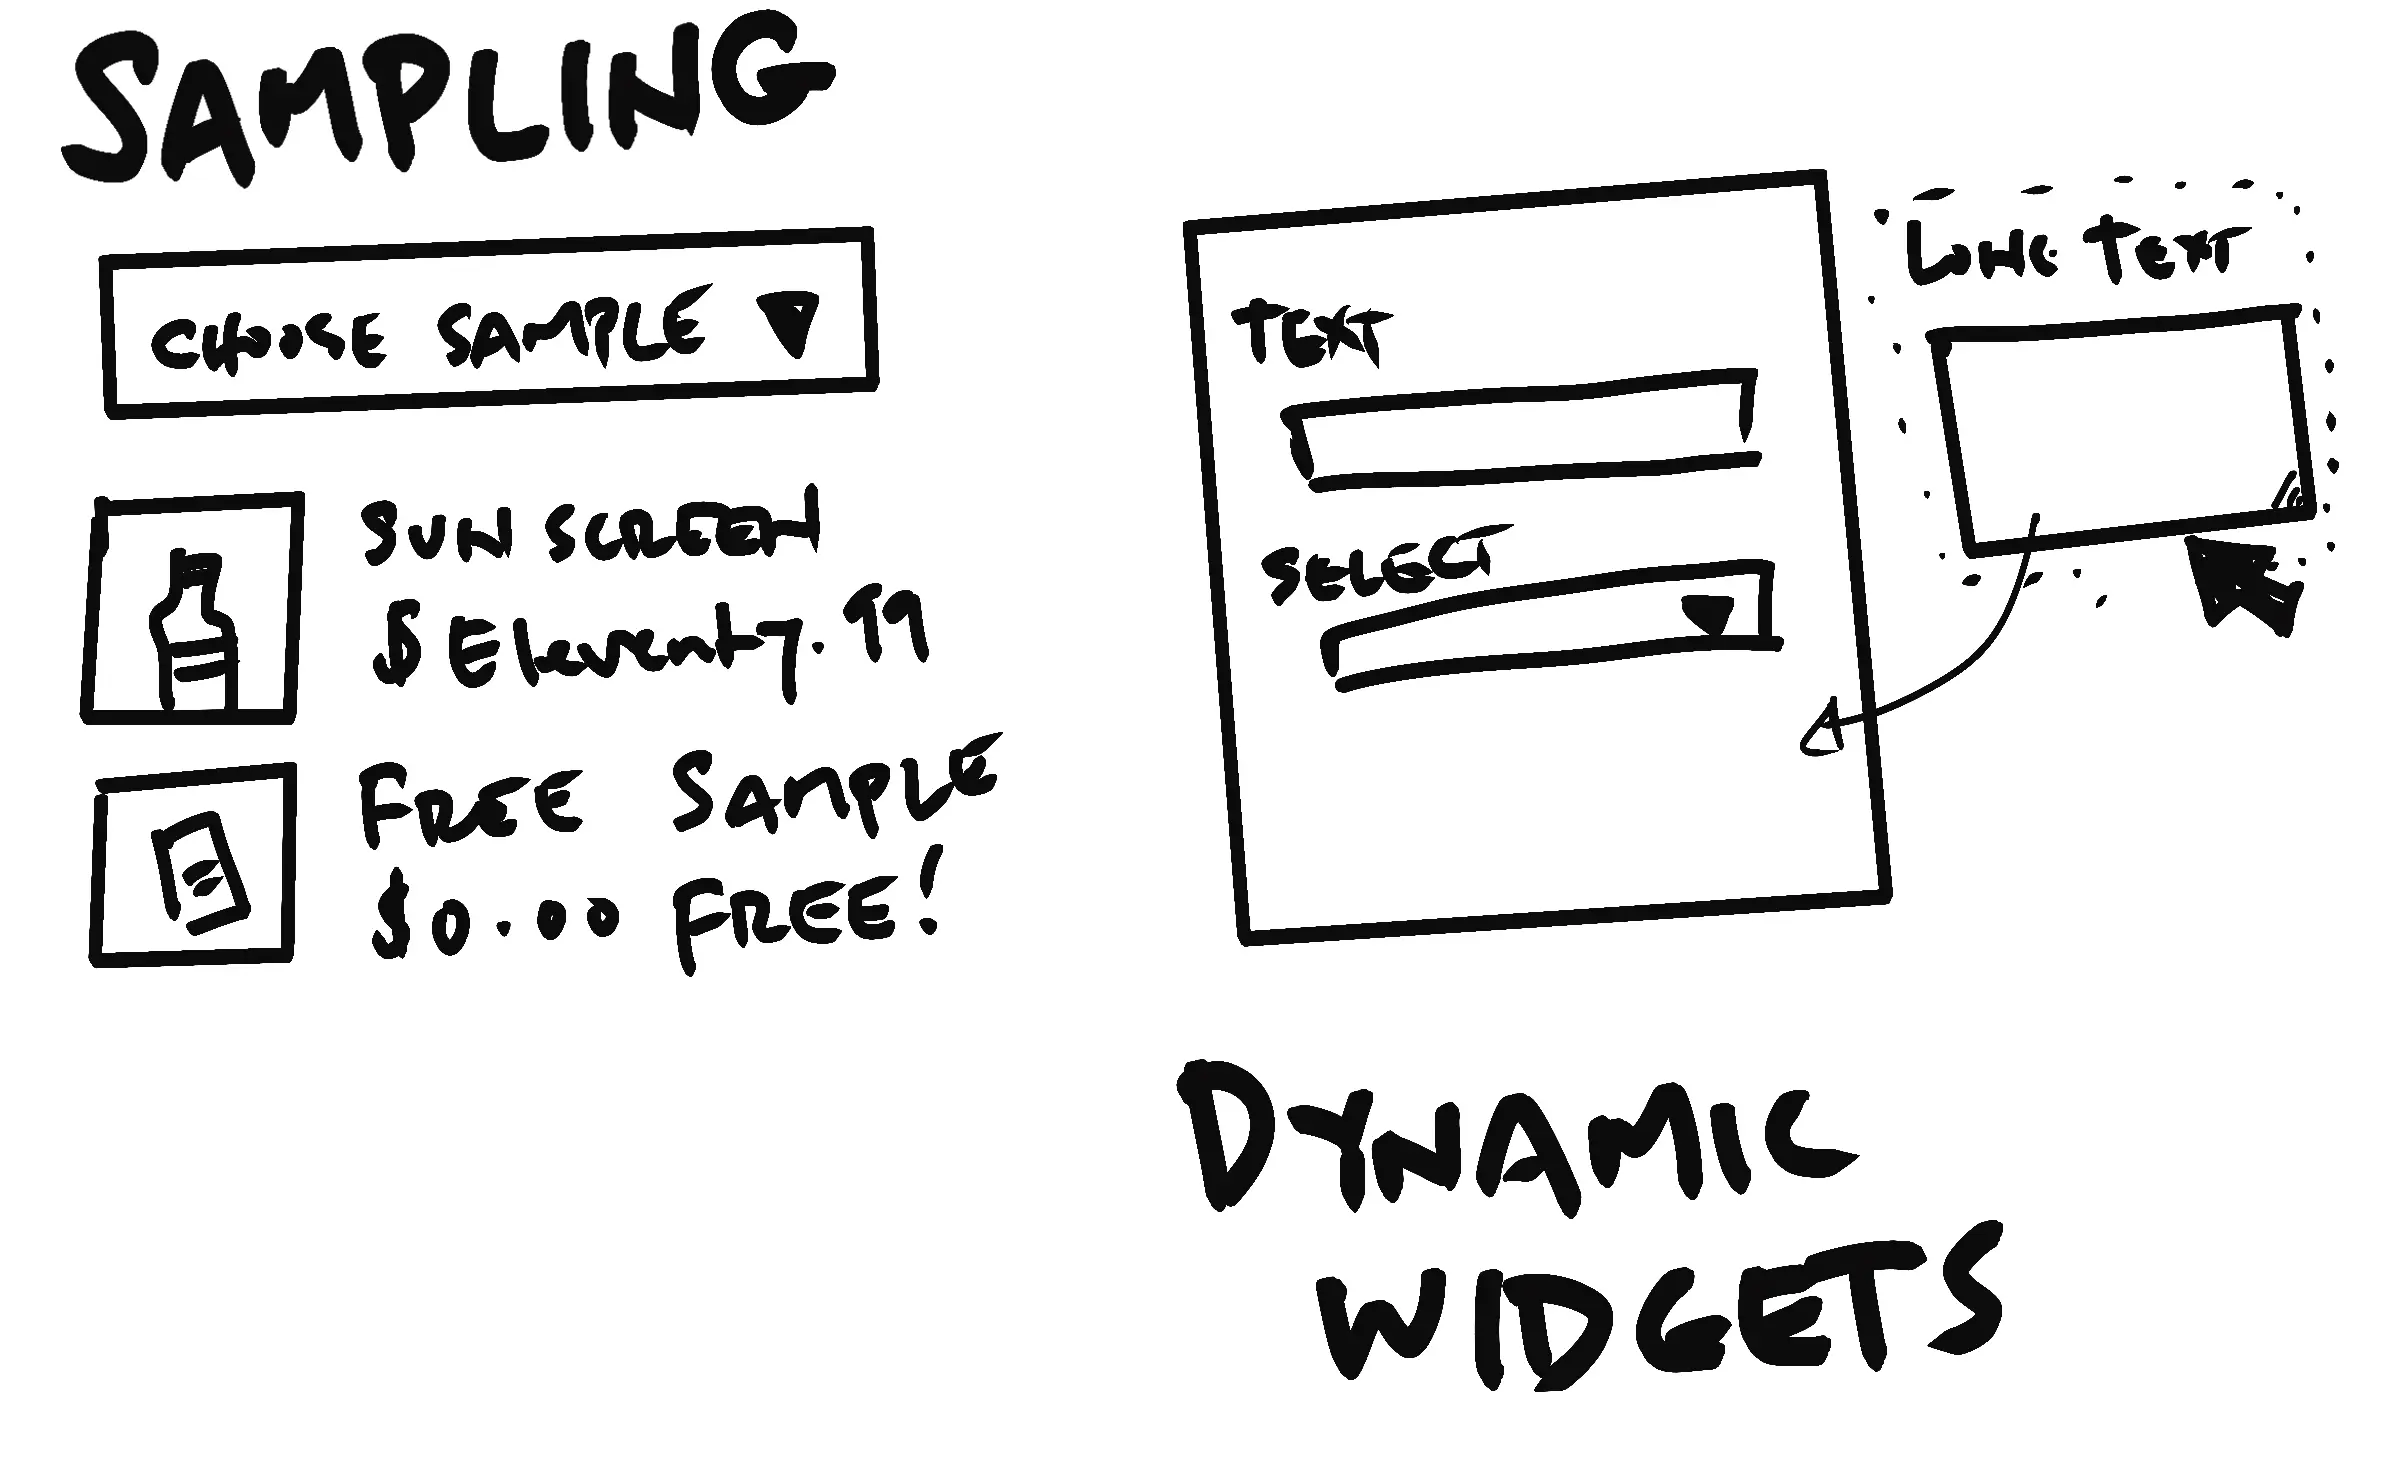 SAMPLING
CHOOSE SAMPLE
SUNSCREEN
$Eleventy.99
FREE SAMPLE
$0.00 FREE!
TEXT
SELECT
LONG TEXT
DYNAMIC
WIDGETS